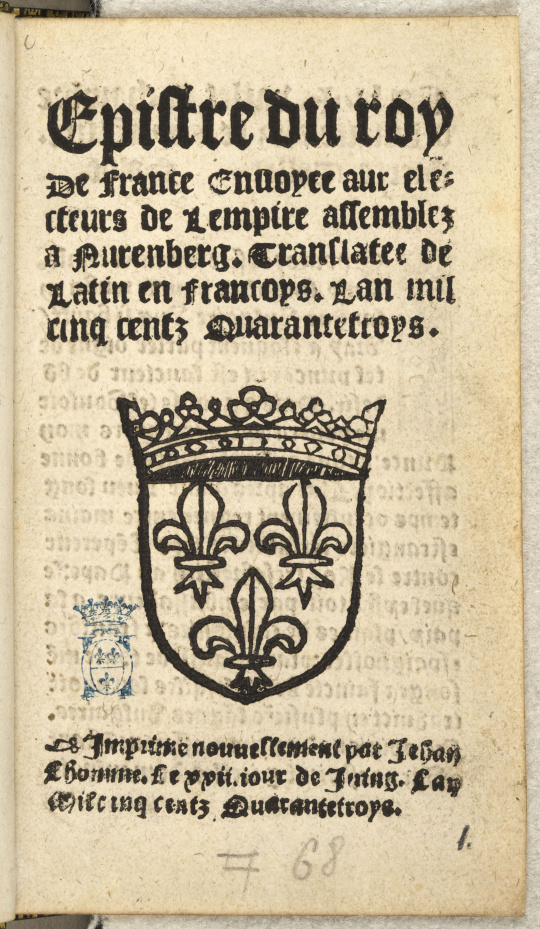 Epistre du roy
De france Enuoyee aux ele-
cteurs de Lempire assemblez
a Nurenberg. Translatee de
Latin en francoys. Lan mil
cinq centz Quarantetroys.
Imprime nouuellement par Jehan
Lhomme. Le xxii. iour de Juing. Lan
Mil cinq centz Quarantetroys.
1.
68